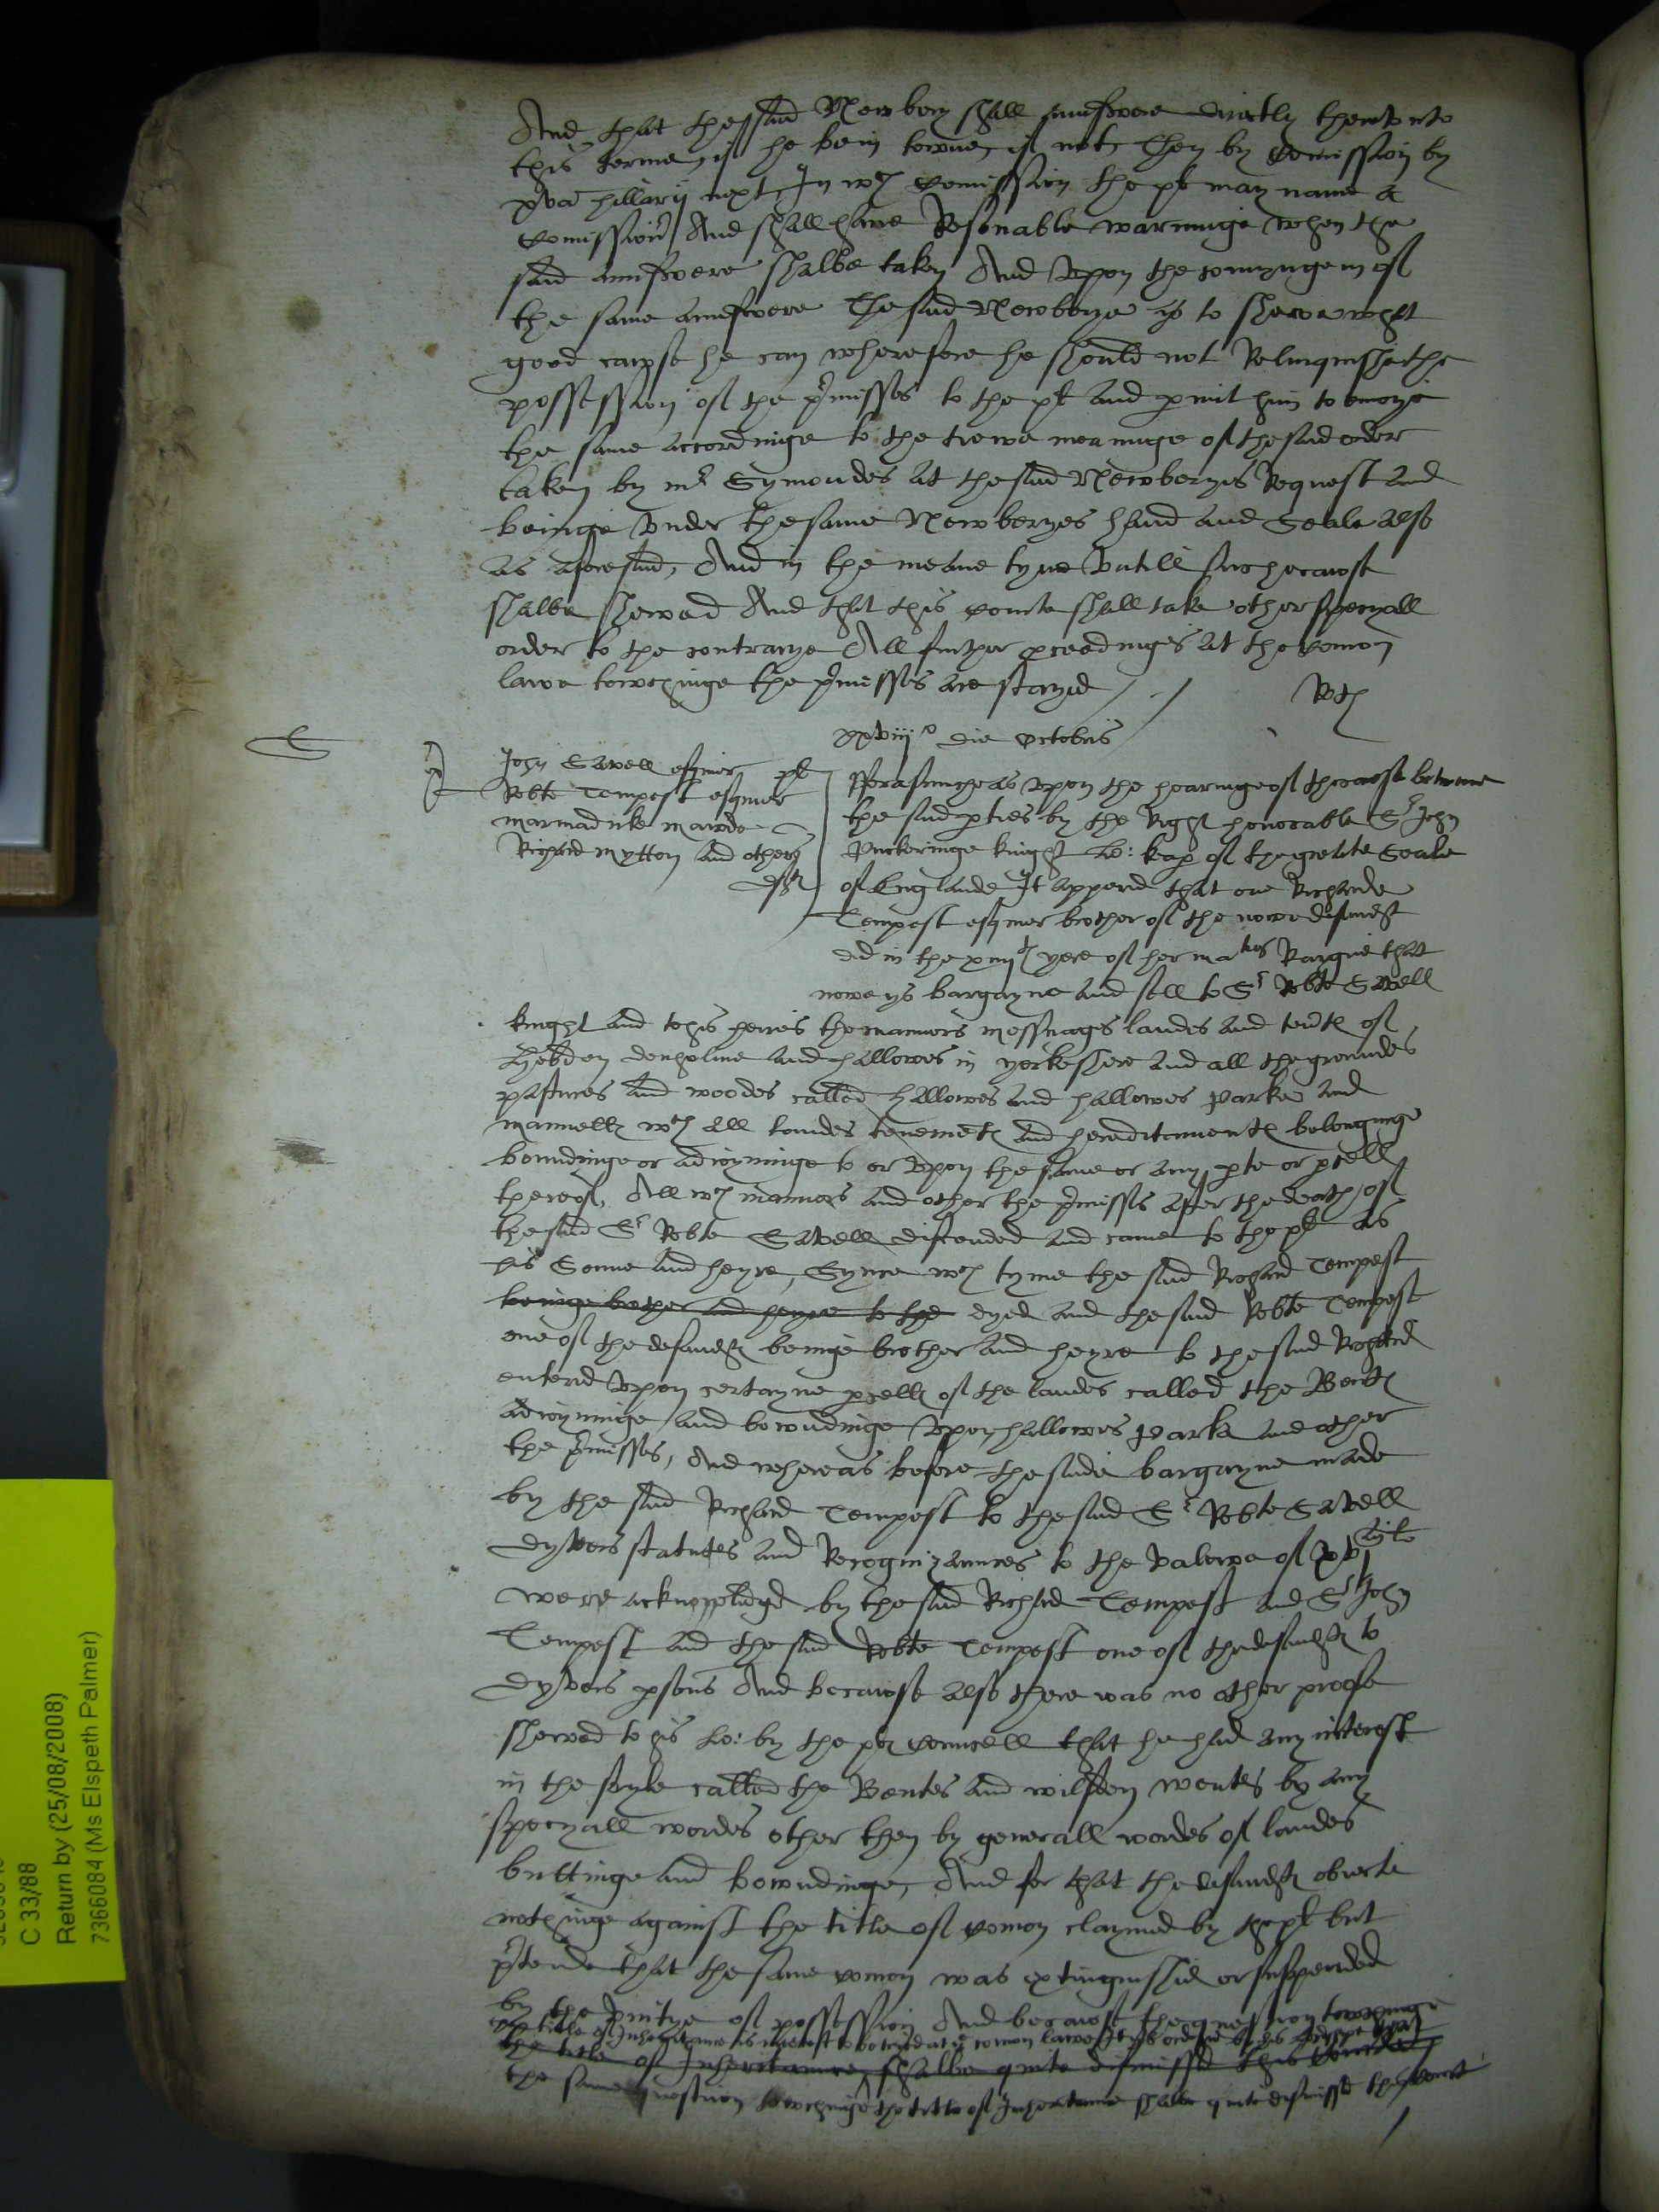 And that the said Newbery shall aunswere directly therevnto
this terme, if he be in towne, if not, then by Comission by
hillarij next, In wch Comission the plt may name a
Comissionr And shall have Resonable warninge when the
said aunswere shalbe taken And Vpon the comynge in of
the same aunswere The said Newberye is to shewe what
good cawse he can wherefore he should not Relinquishe the
possession of the pmisses to the plt and pmit him to enioye
the same accordinge to the trewe meaninge of the said order
taken by mr Symondes at the said Newberyes Request and
beinge vnder the same Newberyes hand and Seale also
as aforesaid, And in the meane tyme Vntill such cawse
shalbe shewed And that this Courte shall take other specyall
order to the contrarye All further pceedinges at the Comon
lawe towchinge the pmisses are stayed
xxviijo die Octobris
John Savell esquier plt
Robte Tempest esquier
Marmaduke
Richard Mytton and others
deftes
fforasmuche as vpon the hearinge of the cawse betwene
the said pties by the Right honorable Sr John
Puckeringe knight Lo: keap of the greate Seale
of Englande It appered that one Richarde
Tempest esquier brother of the nowe defendt
did in the yere of her maties Raigne that
nowe ys bargayne and sell to Sr Robte Savell
knight and to his heires the mannors messuages landes and tentes of
and hallowes in yorkeshere and all the groundes
pastures and woodes called Hallowes and hallowes Parke and
wch all landes tenemtes and hereditamentes belonginge
boundinge or adioyninge to or vpon the same or any pte or pcell
thereof, All wch mannors and other the pmisses after the death of
the said Sr Robte Savell discended and came to the plt as
his Sonne and heyre, Synce wch tyme the said Richard Tempest
beinge brother and heyre to the dyed and the said Robte Tempest
one of the defendtes beinge brother and heyre to the said Richard
entered vpon certayne pcelles of the landes called the Bentes
adioyninge and bowndinge vpon hallowes Parke and other
the pmisses, And whereas before the saide bargayne made
by the said Richard Tempest to the said Sr Robte Savell
dyvers statutes and Recognizaunces to the valewe of
were acknowledged by the said Richard Tempest and Sr John
Tempest and the said Robte Tempest one of the defendtes to
dyvers psons And becawse also there was no other proofe
shewed to his Lo: by the plts Councell that he had any interest
in the soyle called the Bentes and by any
specyall wordes other then by generall wordes of landes
buttinge and bowndinge, And for that the defendtes obiecte
nothinge against the title of Comon claymed by the plt but
ptende that the same comon was extinguished or suspended
by the Vnitye of possession And becawse the question towchinge
the title of Inheritaunce is meetest to be tried at ye comon lawe It ys ordered by his Lordshippe that
the title of Inheritaunce shalbe quite dismissed this Courte
the same question towchinge the title of Inheritaunce shalbe quite dismissed this Court
C 33/88
Return by (25/08/2008)
7366084 (Ms Elspeth Palmer)